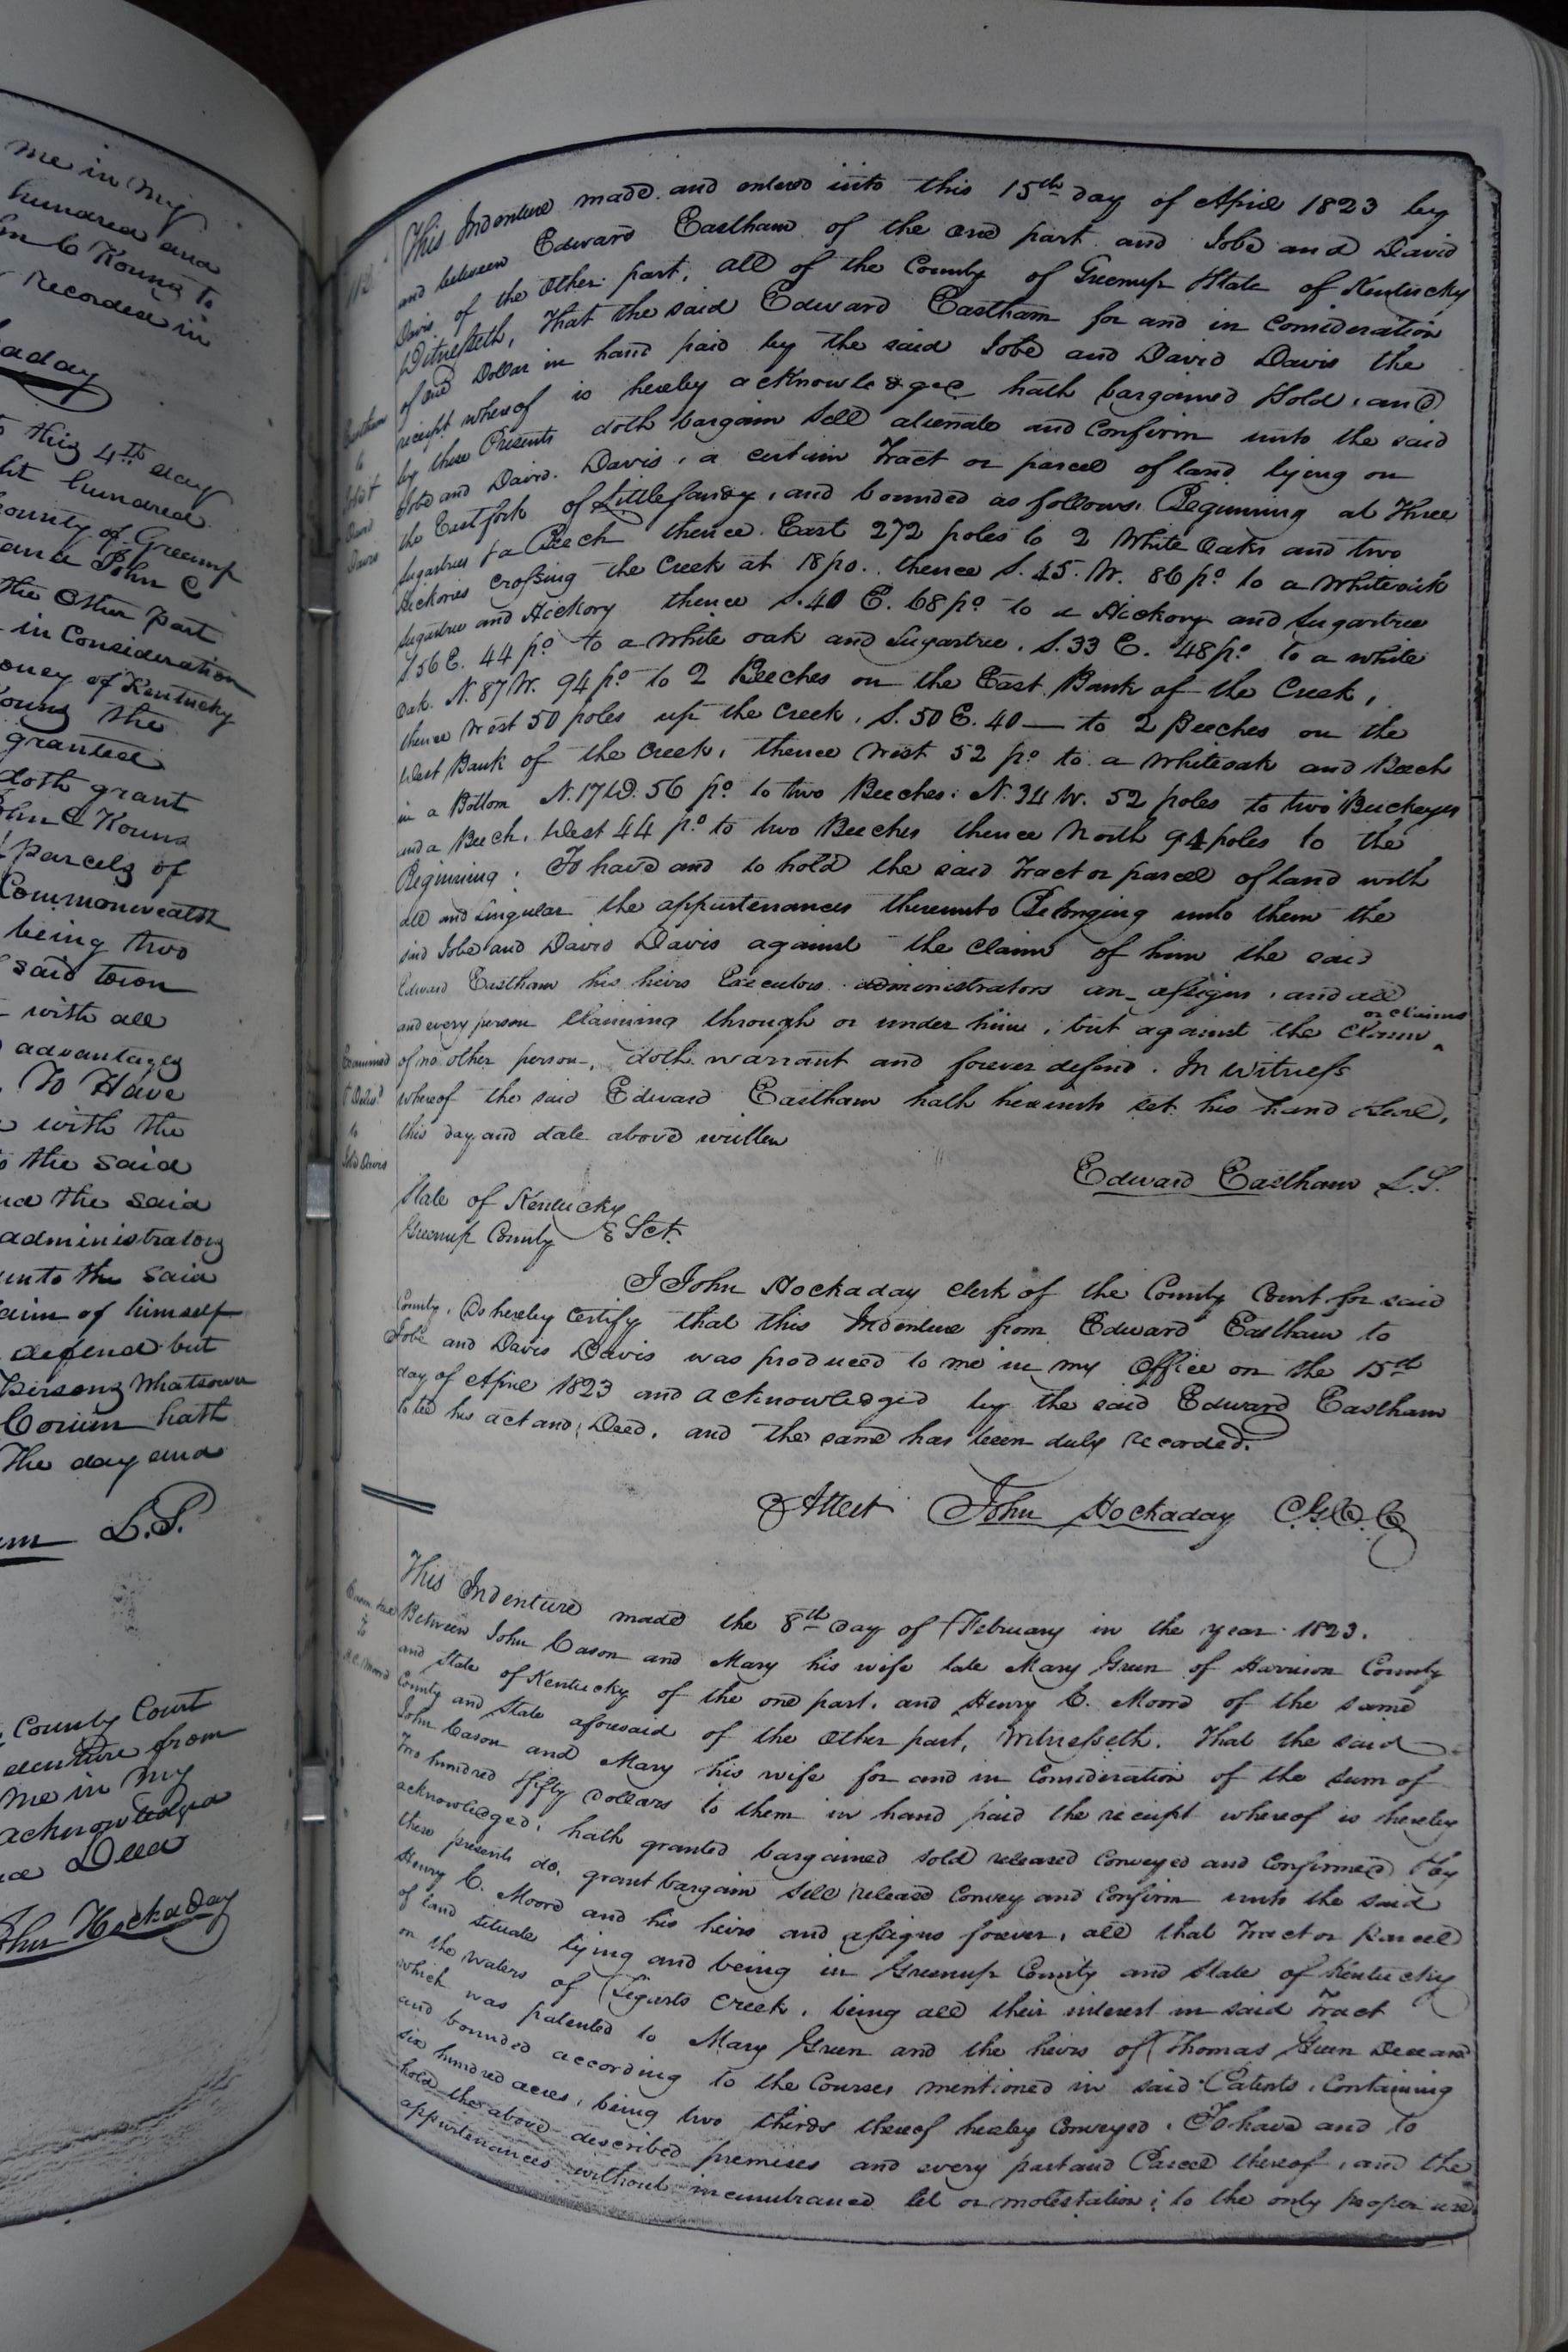 me in my
hundred and
C Kouns to
recorded in
aday
this 4th day
hundred
County of Greenup
and John C
the other part
in Consideration
money of Kentucky
Kouns the
granted
doth grant
John C Kouns
parcels of
Commonwealth
being two
said town
with all
advantages
To Have
with the
to the said
and the said
administrators
unto the said
claim of himself
defend but
Persons Whatsoever
Corum hath
The day and
L.S.
County Court
Indenture from
me in my
acknowledged
Deed
John Hockaday
This Indenture made and entered into this 15th day of April 1823 by
and between Edward Eastham of the one part and Jobe and David
Davis of the other part, all of the County of Greenup State of Kentucky
Witnesseth, That the said Edward Eastham for and in Consideration
of one Dollar in hand paid by the said Jobe and David Davis the
receipt whereof is hereby acknowledged hath bargained Sold, and
by these Presents doth bargain Sell alienate and Confirm unto the said
Jobe and David Davis, a certain Tract or parcel of land lying on
the East fork of Little Sandy, and bounded as follows, Beginning at Three
Sugartrees & a Beech thence East 272 poles to 2 White Oaks and two
Hickories crossing the Creek at 18 po. thence S. 45. W. 86 po to a Whiteoak
Sugartree and Hickory thence S. 40 E. 68 po to a Hickory and Sugartree
S 56 E. 44 po to a White oak and Sugartree, S. 33 E. 48 po to a white
Oak. N. 87 W. 94 po to 2 Beeches on the East Bank of the Creek,
thence West 50 poles up the Creek, S. 50 E. 40 — to 2 Beeches on the
West Bank of the Creek, thence West 52 po to a Whiteoak and Beech
in a Bottom N. 17 W. 56 po to two Beeches. N. 34 W. 52 poles to two Buckeyes
and a Beech, West 44 po to two Beeches thence North 94 poles to the
Beginning. To have and to hold the said Tract or parcel of land with
all and singular the appurtenances thereunto Belonging unto them the
said Jobe and David Davis against the Claim of him the said
Edward Eastham his heirs Executors administrators an_ assigns, and all
and every person Claiming through or under him, but against the Claim or claims
of no other person, doth warrant and forever defend. In Witness
whereof the said Edward Eastham hath hereunto set his hand & Seal,
this day and date above written
Edward Eastham L.S.
Eastham
to
Jobe &
David
Davis
Examined
to
Jobe Davis
State of Kentucky
Greenup County Sct.
I John Hockaday Clerk of the County Court for said
County, Do hereby Certify that this Indenture from Edward Eastham to
Jobe and Davis Davis was produced to me in my Office on the 15th
day of April 1823 and acknowledged by the said Edward Eastham
to be his act and Deed, and the same has been duly recorded.
Attest John Hockaday C.G.C.C.
This Indenture made the 8th day of February in the year 1823.
Between John Cason and Mary his wife late Mary Green of Harrison County
and State of Kentucky of the one part, and Henry C. Moore of the same
County and State aforesaid of the other part, Witnesseth. That the said
John Cason and Mary his wife for and in Consideration of the sum of
Two hundred & fifty Dollars to them in hand paid the receipt whereof is hereby
acknowledged, hath granted bargained sold released Conveyed and Confirmed & by
these presents do, grant bargain sell release Convey and Confirm unto the said
Henry C. Moore and his heirs and assigns forever, all that Tract or Parcel
of land situate lying and being in Greenup County and State of Kentucky
on the waters of Tygarts Creek, being all their interest in said Tract
which was patented to Mary Green and the heirs of Thomas Green Deceased
and bounded according to the Courses mentioned in said Patents, Containing
six hundred acres, being two thirds thereof hereby Conveyed. To have and to
hold the above described premises and every part and Parcel thereof, and the
appurtenances without incumbrance let or molestation; to the only proper use